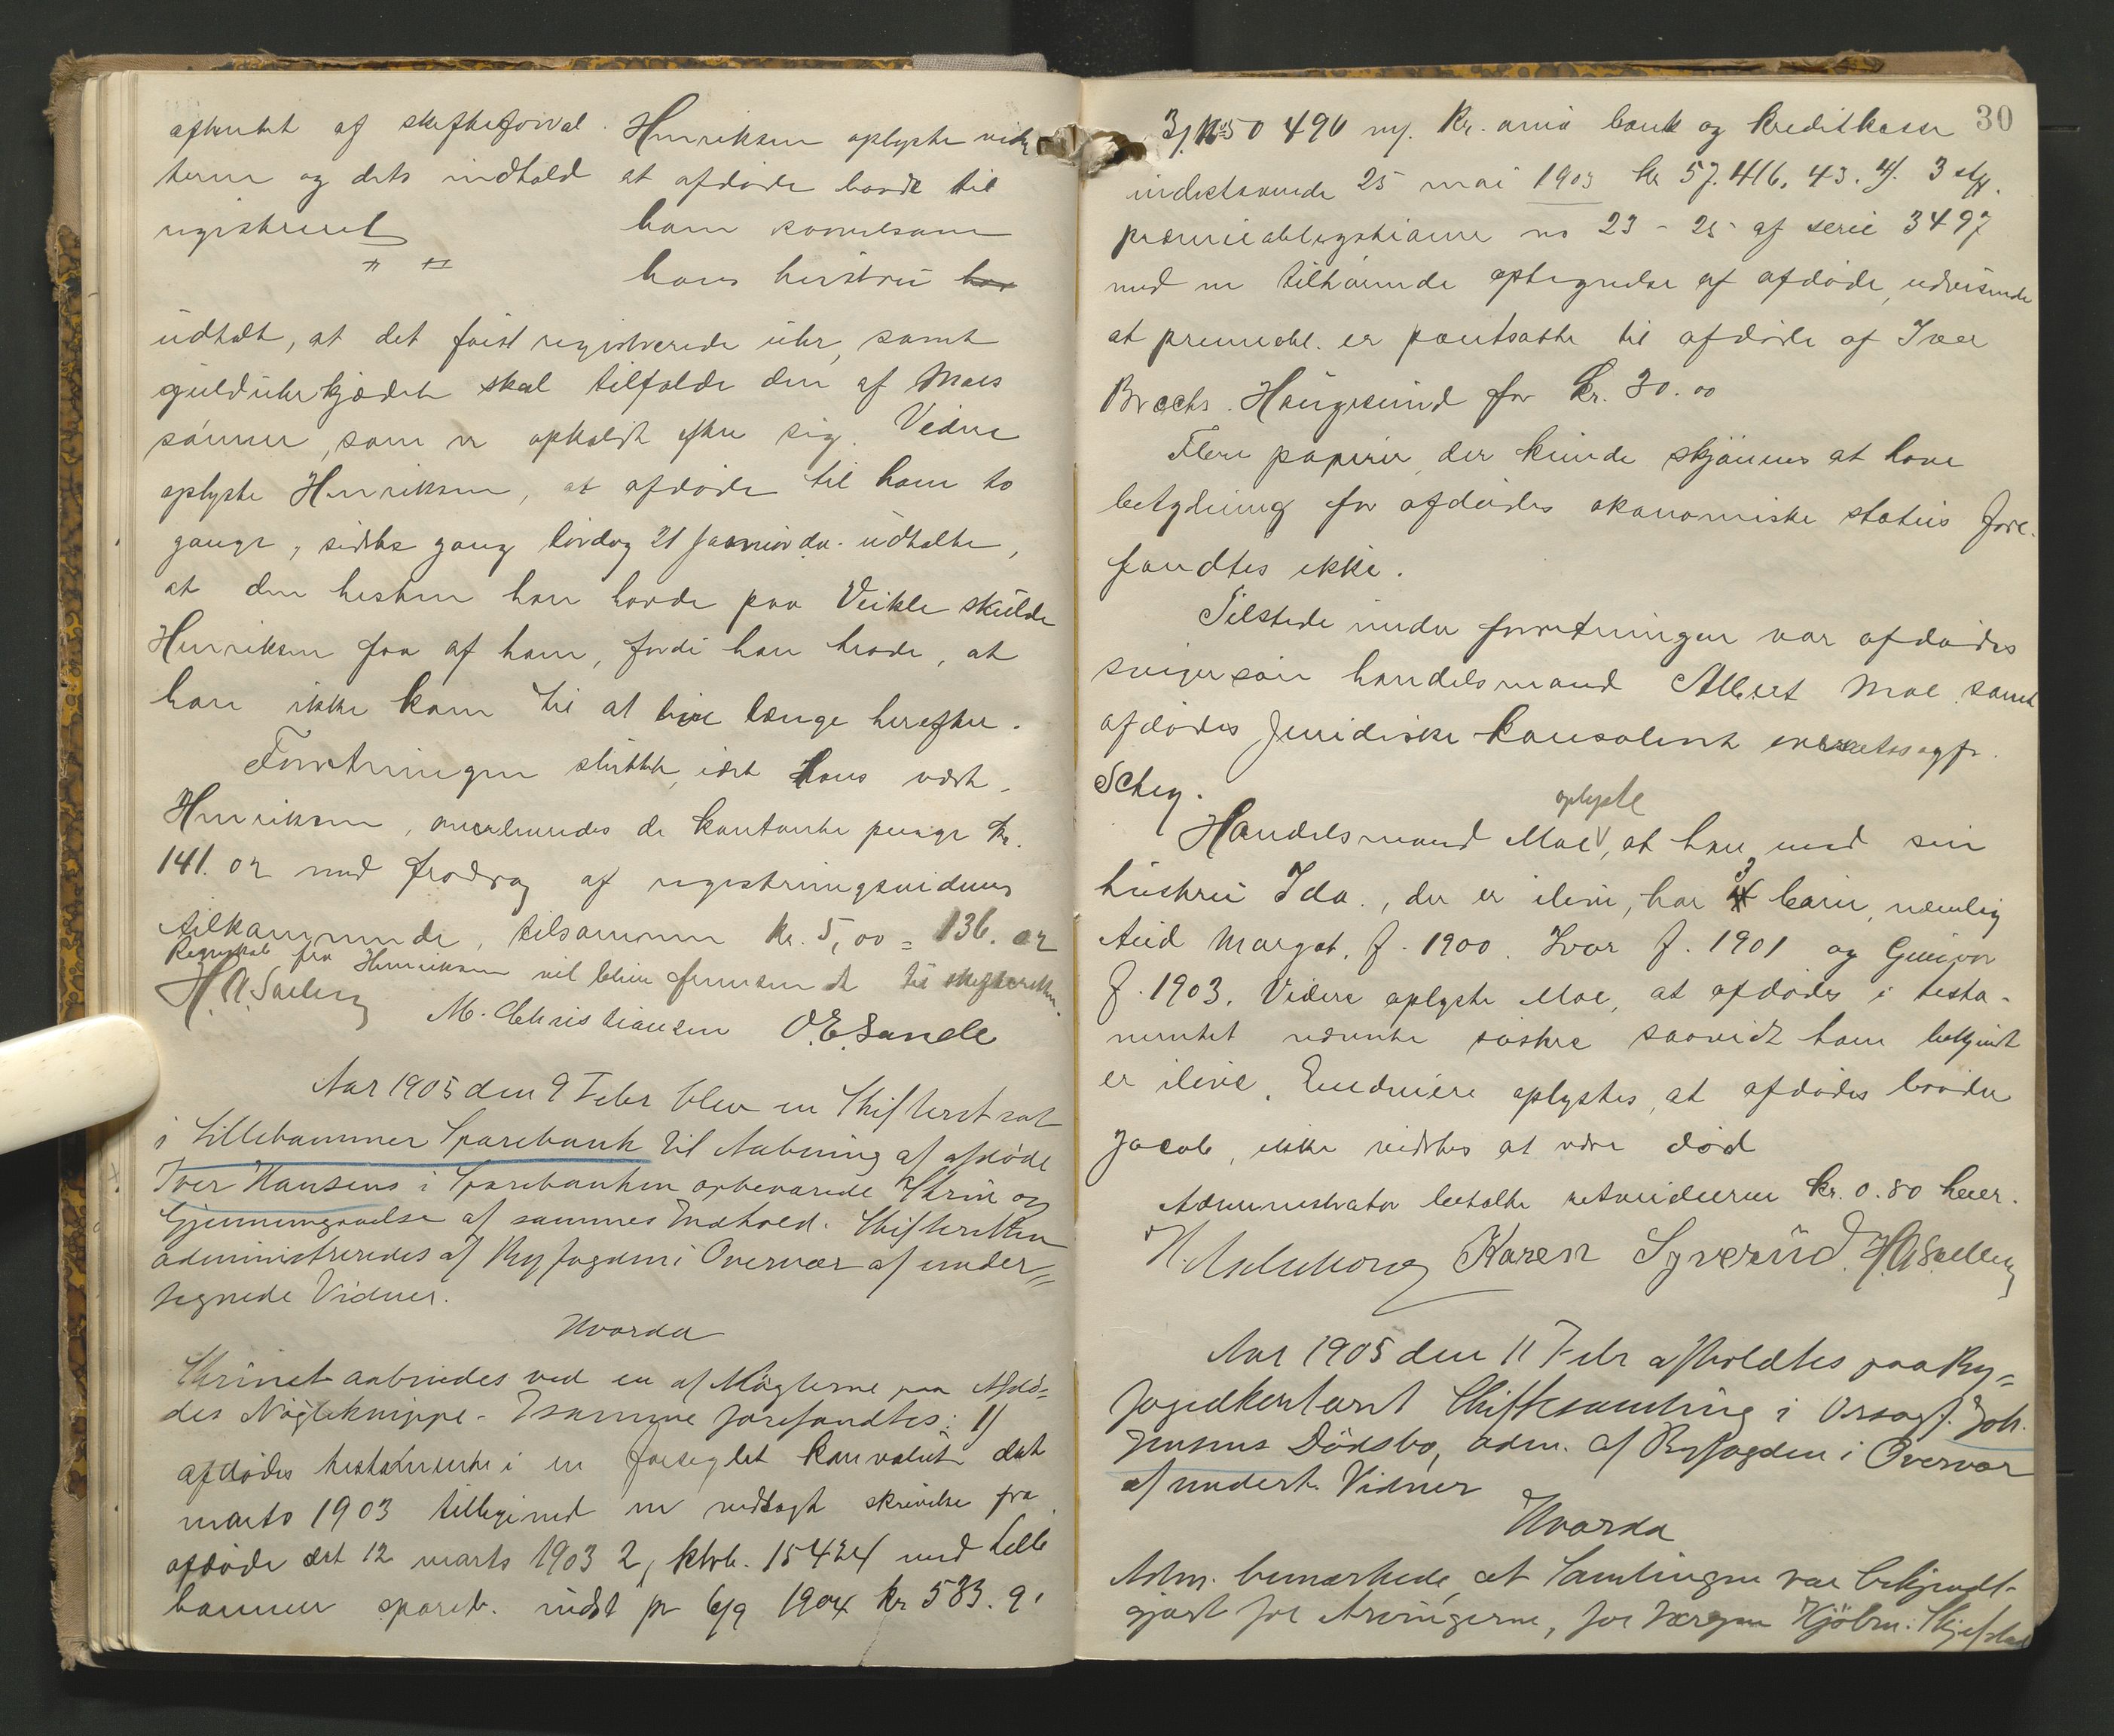 afhentet af skifteforval
terne og dets indhold
registreret
Henriksen oplyste vider
at afdøde havde til
ham sovelsom
hans hustru har
udtalt, at det først registrerede uhr, samt
gulduhrkjædet skal tilfalde den af Maes
sønner, som er opkaldt efter sig. Videre
oplyste Henriksen, at afdøde til ham to
gange, sidste gang lørdag 21 januar da. udtalte,
at den hesten han havde paa Veikle skulde
Henriksen faa af ham, fordi han trode, at
han ikke kom til at leve længe herefter.
Forretningen sluttet, idet Hans vært,
Henriksen, overleveredes de kontante penge kr.
141. 02 med fradrag af registreringsvidners
tilkommende, tilsammen kr. 5,00 = 136. 02
Regnskab fra Henriksen vil blive fremsendt til skifteretten.
H. A. Sælling M. Christiansen O. E. Sande
Aar 1905 den 9 Febr blev en Skifteret sat
i Lillehammer Sparebank til Aabning af afdøde
Iver Hansens i Sparebanken opbevarede Skrin og
Gjennemgaaelse af sammes Indhold. Skifteretten
administreredes af Byfogden i Overvær af under=
tegnede Vidner.
Hvorda
Skrinet aabnedes ved en af Nøglerne paa Afdø=
des Nögleknippe. I samme forefandtes: 1)
afdødes testamente i en forseglet konvolut dat
marts 1903 tilligemed en vedlagt skrivelse fra
afdøde dat 12 marts 1903 2, ktrb. 15424 med Lille
hammer spareb. indst pr 6/9 1904 kr 583. 91
30
3/. No 50 490 m/. Kr. ania bank og kreditkasse
indestaaende 25 mai 1903 kr 57.416, 43. 4/. 3 stk.
præmieobligationer no 23 - 25 af serie 3497
med en tilhørende optegnelse af afdøde, udvisende
at premieobl. er pantsatte til afdøde af Iver
Brechs. Haugesund for kr. 30.00
Flere papirer, der kunde skjønnes at have
betydning for afdødes økonomiske status fore-
fandtes ikke.
Tilstede under forretningen var afdødes
svigersøn handelsmand Albert Moe samt
afdødes juridiske konsulent overretssagfr.
Scheg.
Handelsmand Moe oplyste, at han med sin
hustru Ida, der er ilive, har 3 barn, nemlig
Aud Margot, f. 1900. Ivar f. 1901 og Gunvor
f. 1903. Videre oplyste Moe, at afdødes i testa-
mentet nævnte søstre saavidt ham bekjendt
er ilive. Endvidere oplystes, at afdødes broder
Jacob, ikke vidstes at være død
Administrator betalte retsvidnerne kr. 0.80 hver.
Karen Syverüd. H. A. Sælling
Aar 1905 den 11 Febr afholdtes paa By=
fogedkontoret Skiftesamling i Orsagf. Joh.
Jensens Dödsbo, adm. af Byfogden i Overvær
af undert. Vidner
Hvorda
Adm. bemærkede, at Samlingen var bekjendt-
gjort for Arvingerne, for Værgen Kjöbm. Skjefstad